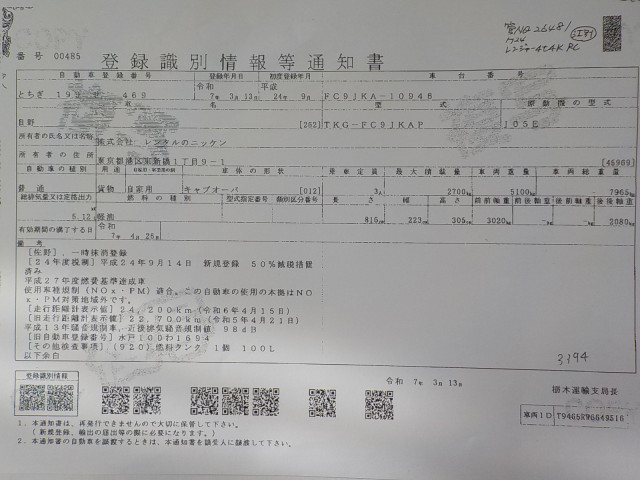 番号 00485
登録識別情報等通知書
4t4K PC
自動車登録番号 登録年月日 初度登録年月 車台番号
令和 平成
とちぎ 469 7年 3月 13日 24年 9月 FC9JKA-1094
型式 原動機の型式
日野 [262] TKG-FC9JKAP J05E
所有者の氏名又は名称 株式会社 レンタルのニッケン
所有者の住所 東京都港区東新橋1丁目9-1 [45969]
自動車の種別 用途 自家用・事業用の別 車体の形状 乗車定員 最大積載量 車両重量 車両総重量
普通 貨物 自家用 キャブオーバ [012] 3人 2700kg 5100kg 7965kg
総排気量又は定格出力 燃料の種別 型式指定番号 類別区分番号 長さ 幅 高さ 前前軸重 前後軸重 後前軸重 後後軸重
5.12 軽油 816cm 223cm 305cm 3020kg 2080kg
有効期間の満了する日 令和
7年 4月 26日
備考
[佐野]、一時抹消登録
[24年度税制]平成24年9月14日 新規登録 50%減税措置
済み
平成27年度燃費基準達成車
使用車種規制(NOx・PM)適合。この自動車の使用の本拠はNO
x・PM対策地域外です。
[走行距離計表示値]24,200km(令和6年4月15日)
[旧走行距離計表示値]22,700km(令和5年4月21日)
平成13年騒音規制車、近接排気騒音規制値 98dB
[旧自動車登録番号]水戸109わ1694
[その他検査事項](920)燃料タンク 1個 100L
以下余白
3394
登録識別情報
令和 7年 3月 13日
栃木運輸支局長
車両ID
1.本通知書は、再発行できませんので大切に保管して下さい。
(新規登録、輸出の届出等の際に必要になります。)
2.本通知書の自動車を譲渡するときは、本通知書を譲受人に譲渡して下さい。